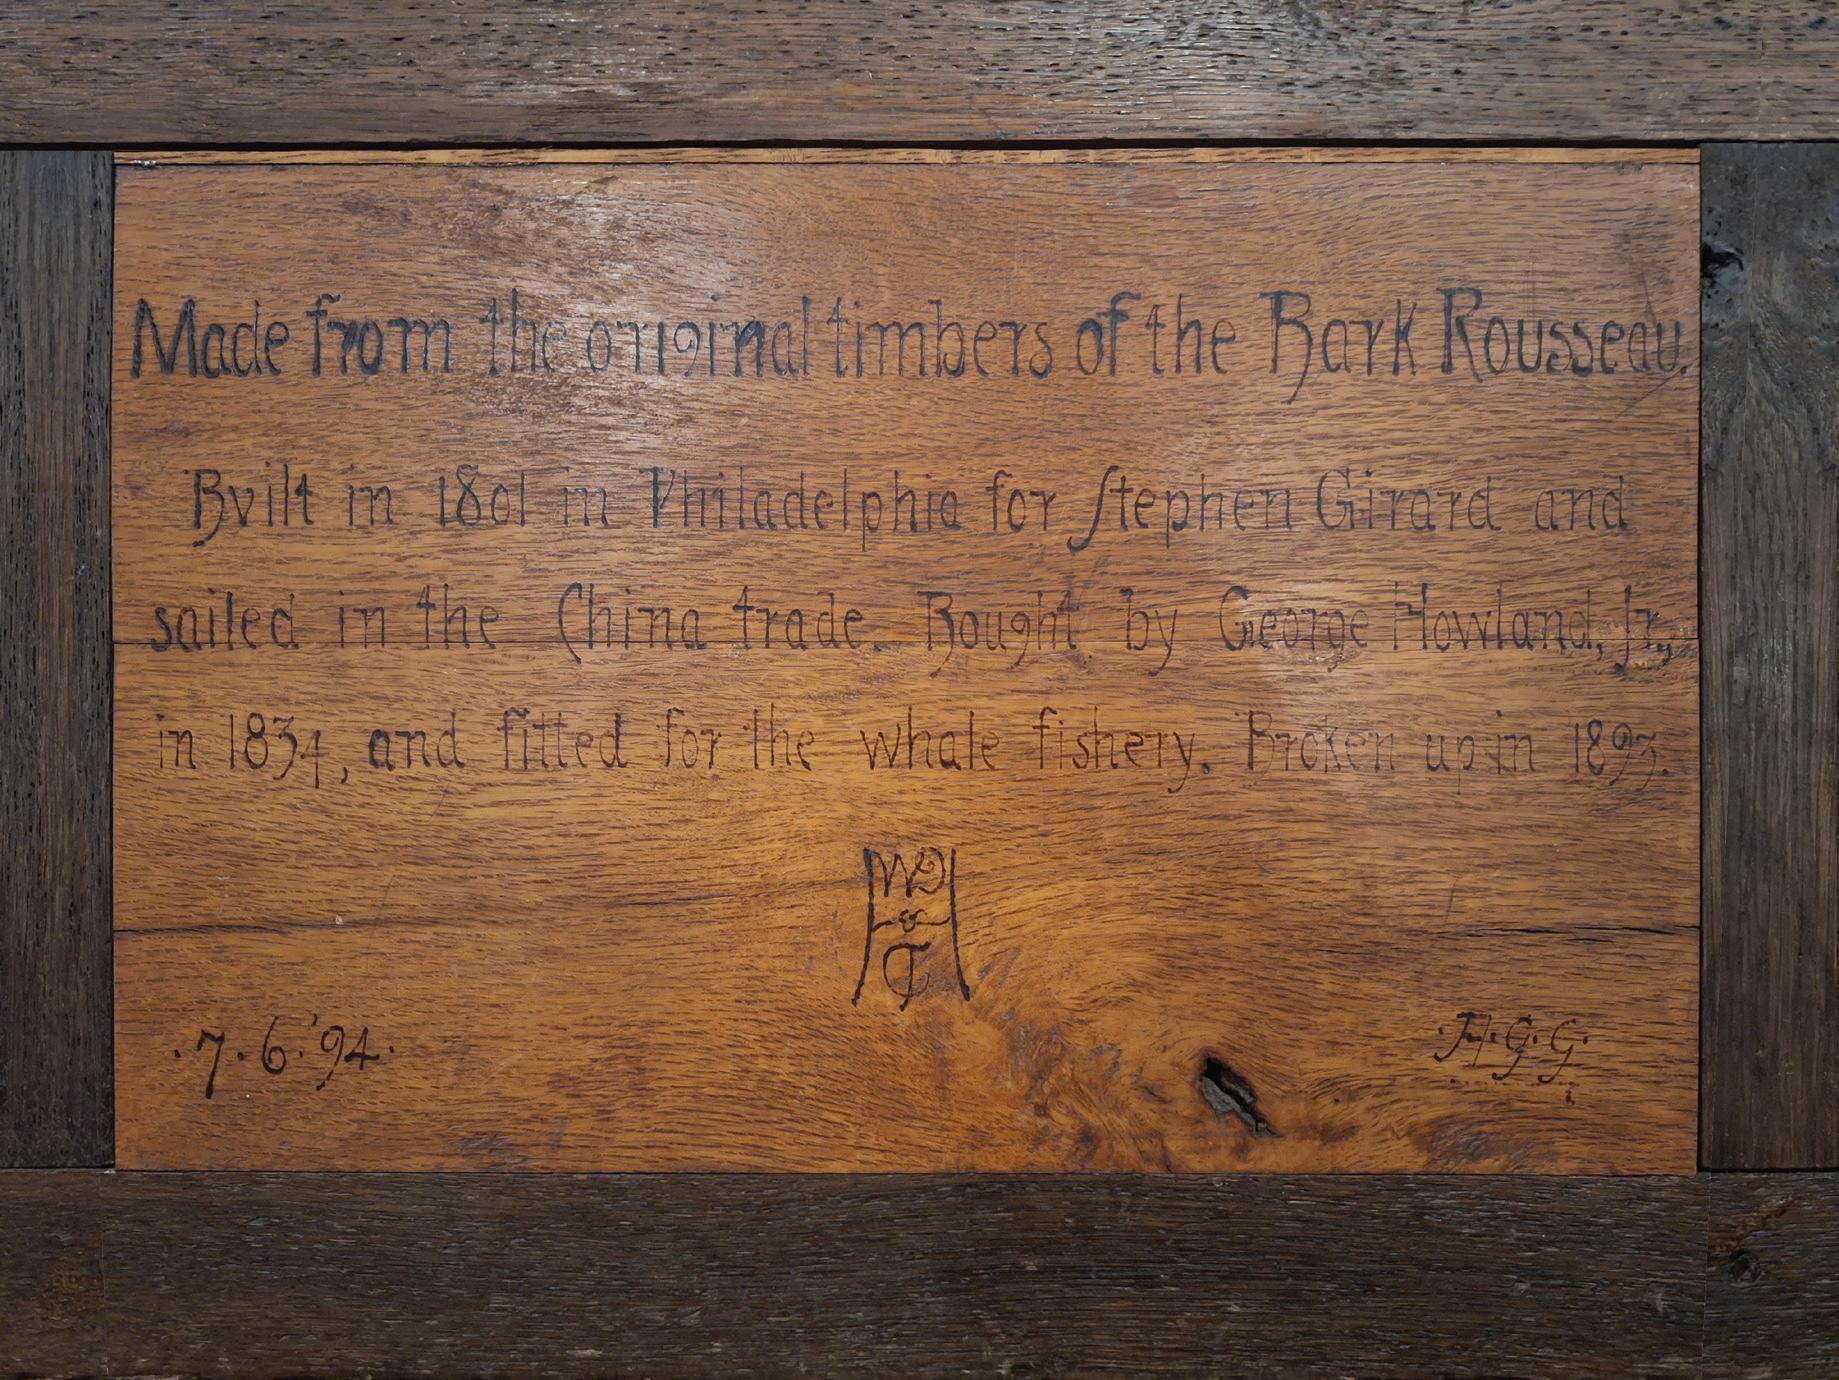 Made from the original timbers of the Bark Rousseau.
Bvilt in 1801 in Philadelphia for Stephen Girard and
sailed in the China trade. Bought by George Howland, Jr.,
in 1834, and fitted for the whale fishery. Broken up in 1893.
WD
&
T
·7·6·'94·
·H·G·G·